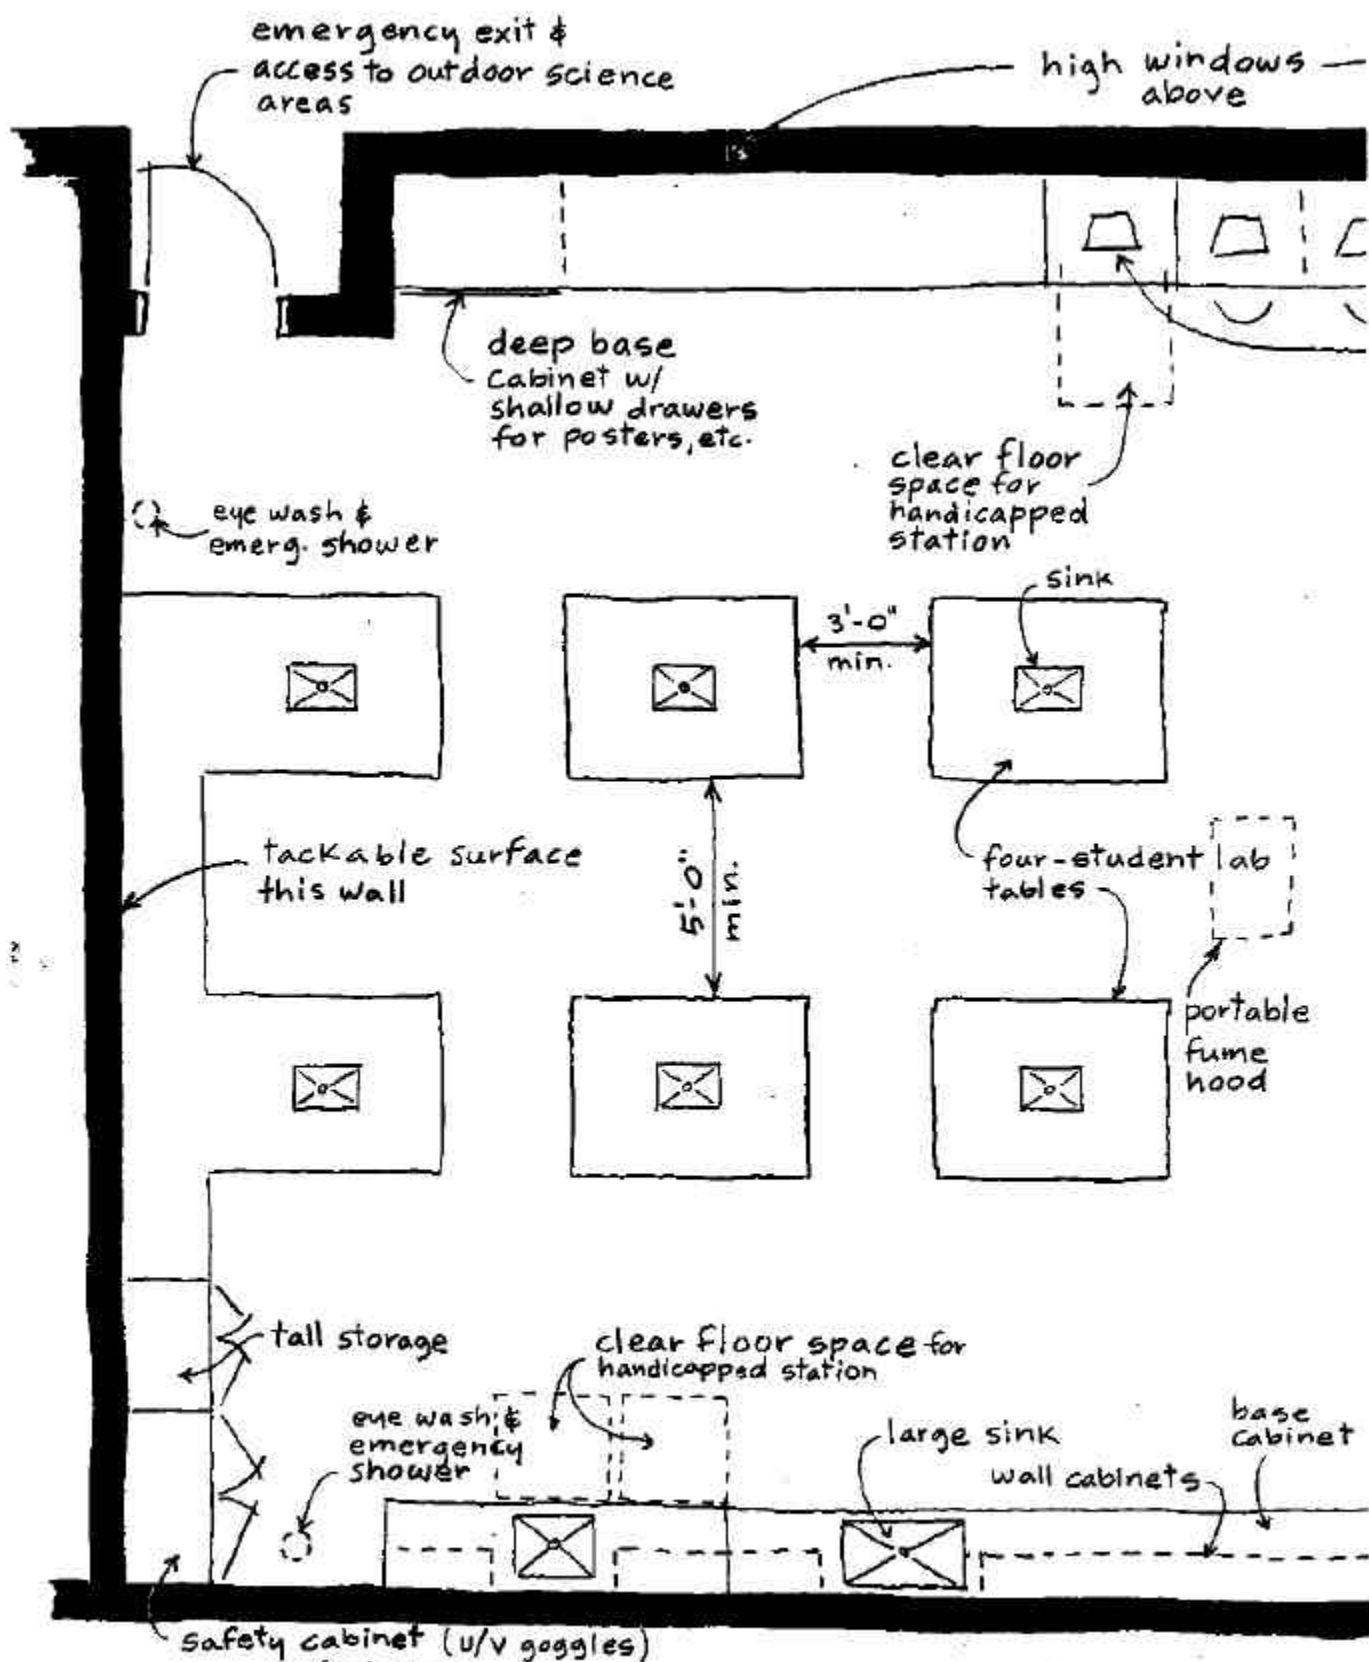 emergency exit &
access to outdoor science
areas
high windows
above
deep base
cabinet w/
shallow drawers
for posters, etc.
clear floor
space for
handicapped
station
eye wash &
emerg. shower
sink
3'-0"
min.
tackable surface
this wall
5'-0"
min.
four-student lab
tables
portable
fume
hood
tall storage
clear floor space for
handicapped station
eye wash &
emergency
shower
large sink
base
cabinet
wall cabinets
safety cabinet (u/v goggles)